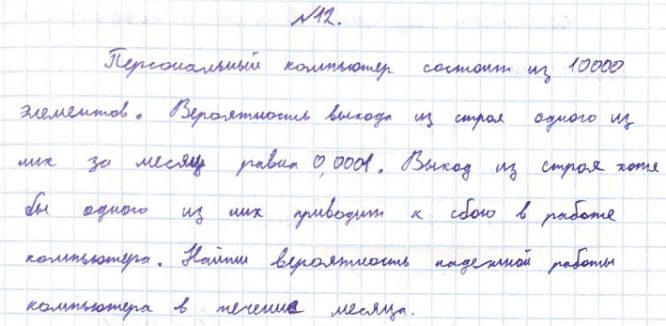 №12.
Персональный компьютер состоит из 10000
элементов. Вероятность выхода из строя одного из
них за месяц равна 0,0001. Выход из строя хотя
бы одного из них приводит к сбою в работе
компьютера. Найти вероятность надежной работы
компьютера в течение месяца.